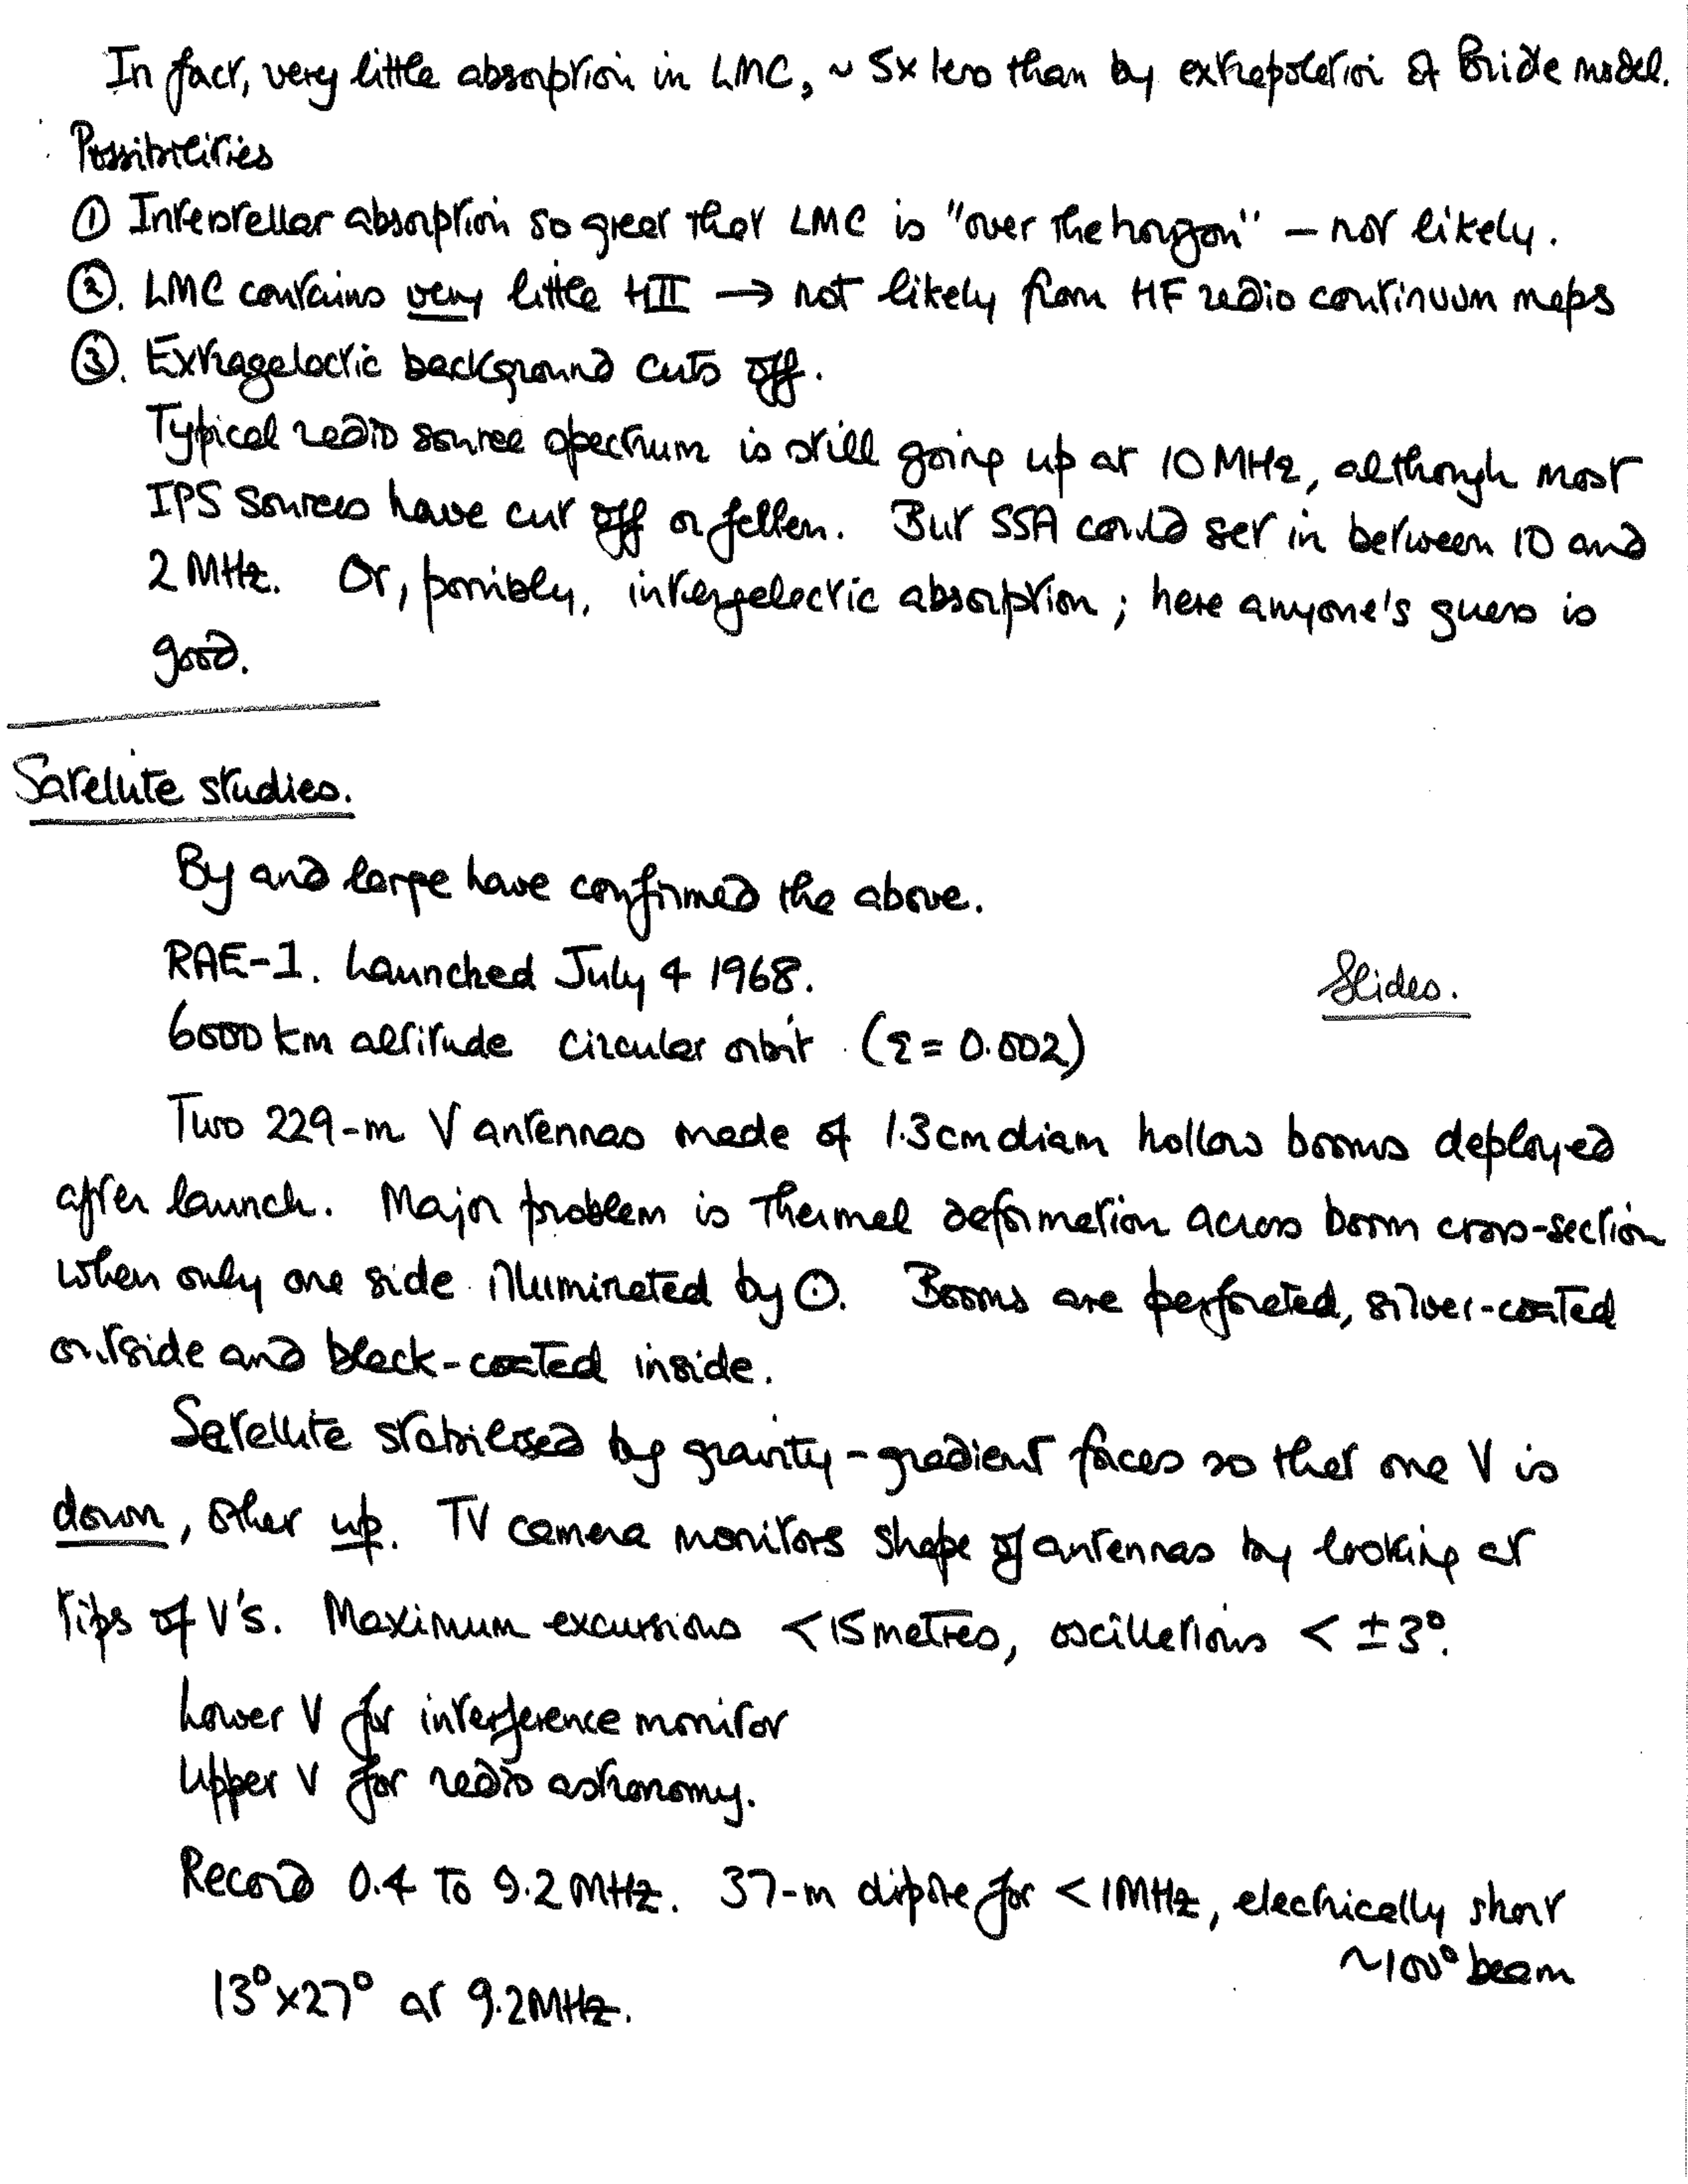 In fact, very little absorption in LMC, ~ 5x less than by extrapolation of Bridle model.
Possibilities
① Interstellar absorption so great that LMC is "over the horizon" – not likely.
②. LMC contains very little HII → not likely from HF radio continuum maps
③. Extragalactic background cuts off.
Typical radio source spectrum is still going up at 10 MHz, although most
IPS sources have cut off or fallen. But SSA could set in between 10 and
2 MHz. Or, possibly, intergalactic absorption; here anyone's guess is
good.
Satellite studies.
By and large have confirmed the above.
RAE-1. Launched July 4 1968.
Slides.
6000 km altitude circular orbit (ε = 0.002)
Two 229-m V antennas made of 1.3cm diam hollow booms deployed
after launch. Major problem is thermal deformation across boom cross-section
when only one side illuminated by ⊙. Booms are perforated, silver-coated
outside and black-coated inside.
Satellite stabilised by gravity-gradient forces so that one V is
down, other up. TV camera monitors shape of antennas by looking at
tips of V's. Maximum excursions < 15 metres, oscillations < ±3°.
Lower V for interference monitor
Upper V for radio astronomy.
Record 0.4 to 9.2 MHz. 37-m dipole for < 1MHz, electrically short
~100° beam
13° x 27° at 9.2MHz.